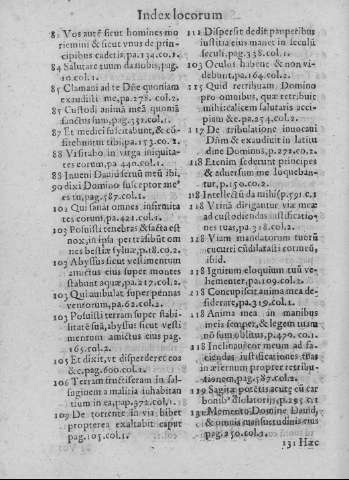 Index locorum
81 Vos autē sicut homines mo
riemini & sicut vnus de prin-
cipibus cadetis, pa.134.co.1.
84 Salutare tuum da nobis, pag.
10.col.1.
85 Clamani ad te Dñe quoniam
exaudisti me, pa.278. col.2.
85 Custodi animā meā quonā
sanctus sum, pag.352.col.1.
87 Et medici suscitabunt, & cō-
fitebuntur tibi, pa.153.co.2.
88 Visitabo in virga iniquita-
tes eorum, pa.440.col.1.
88 Inueni Dauid seruū meū ibi,
90 dixi Domino susceptor me⁹
es tu, pag.587.col.1.
102 Qui sanat omnes infirmita
tes eorum, pa.421.col.1.
103 Posuisti tenebras & facta est
nox, in ipsa pertrāsibūt om
nes bestiæ syluæ, p.18.co.2.
103 Abyssus sicut vestimentum
amictus eius super montes
stabunt aquæ, pa.217.col.2.
103 Qui ambulat super pennas
ventorum, pa.62.col.2.
103 Posuisti terram super stabi-
litatē suā, abyssus sicut vesti
mentum amictus eius pag.
165.col.2.
105 Et dixit, vt disperderet eos
&c. pag.600.col.1.
106 Terram fructiferam in sal-
suginem a malitia inhabitan
tium in ea, pap.372.col.1.
109 De torrente in via bibet
propterea exaltabit caput
pag.105.col.1.
111 Dispersit dedit pauperibus
iustitia eius manet in seculū
seculi, pag.338.col.1.
103 Oculos habent & non vi-
debunt, pa.164.col.2.
115 Quid retribuam Domino
pro omnibus, quæ retribuit
mihi: calicem salutaris acci-
piam &c. pa.254.col.2.
117 De tribulatione inuocaui
Dñm & exaudiuit in latitu
dine Dominus, p.272.co.2.
118 Etenim sederunt principes
& aduersum me loqueban-
tur, p.150.co.2.
118 Intellectū da mihi (p.591 c.1
118 Vtinā dirigantur viæ meæ
ad custodiendas iustificatio-
nes tuas, pa.318.col.2.
118 Viam mandatorum tuorū
cucurri cū dilatasti cor meū,
ibid.
118 Ignitum eloquium tuū ve-
hementer, pa.109.col.2.
118 Concupiscit anima mea de-
siderare, pa.319.col.1.
118 Anima mea in manibus
meis semper, & legem tuam
nō sum oblitus, p.470. co.1.
118 Inclinaui cor meum ad fa-
ciendas iustificationes tuas
in æternum propter retribu-
tionem, pag.587.col.2.
119 Sagitæ potētis acutę cū car
bonib⁹ desolatoriis, p.295.c.1
131 Memento Domine Dauid,
& omnis mansuetudinis eius
pag.250.col.1.
131 Hæc